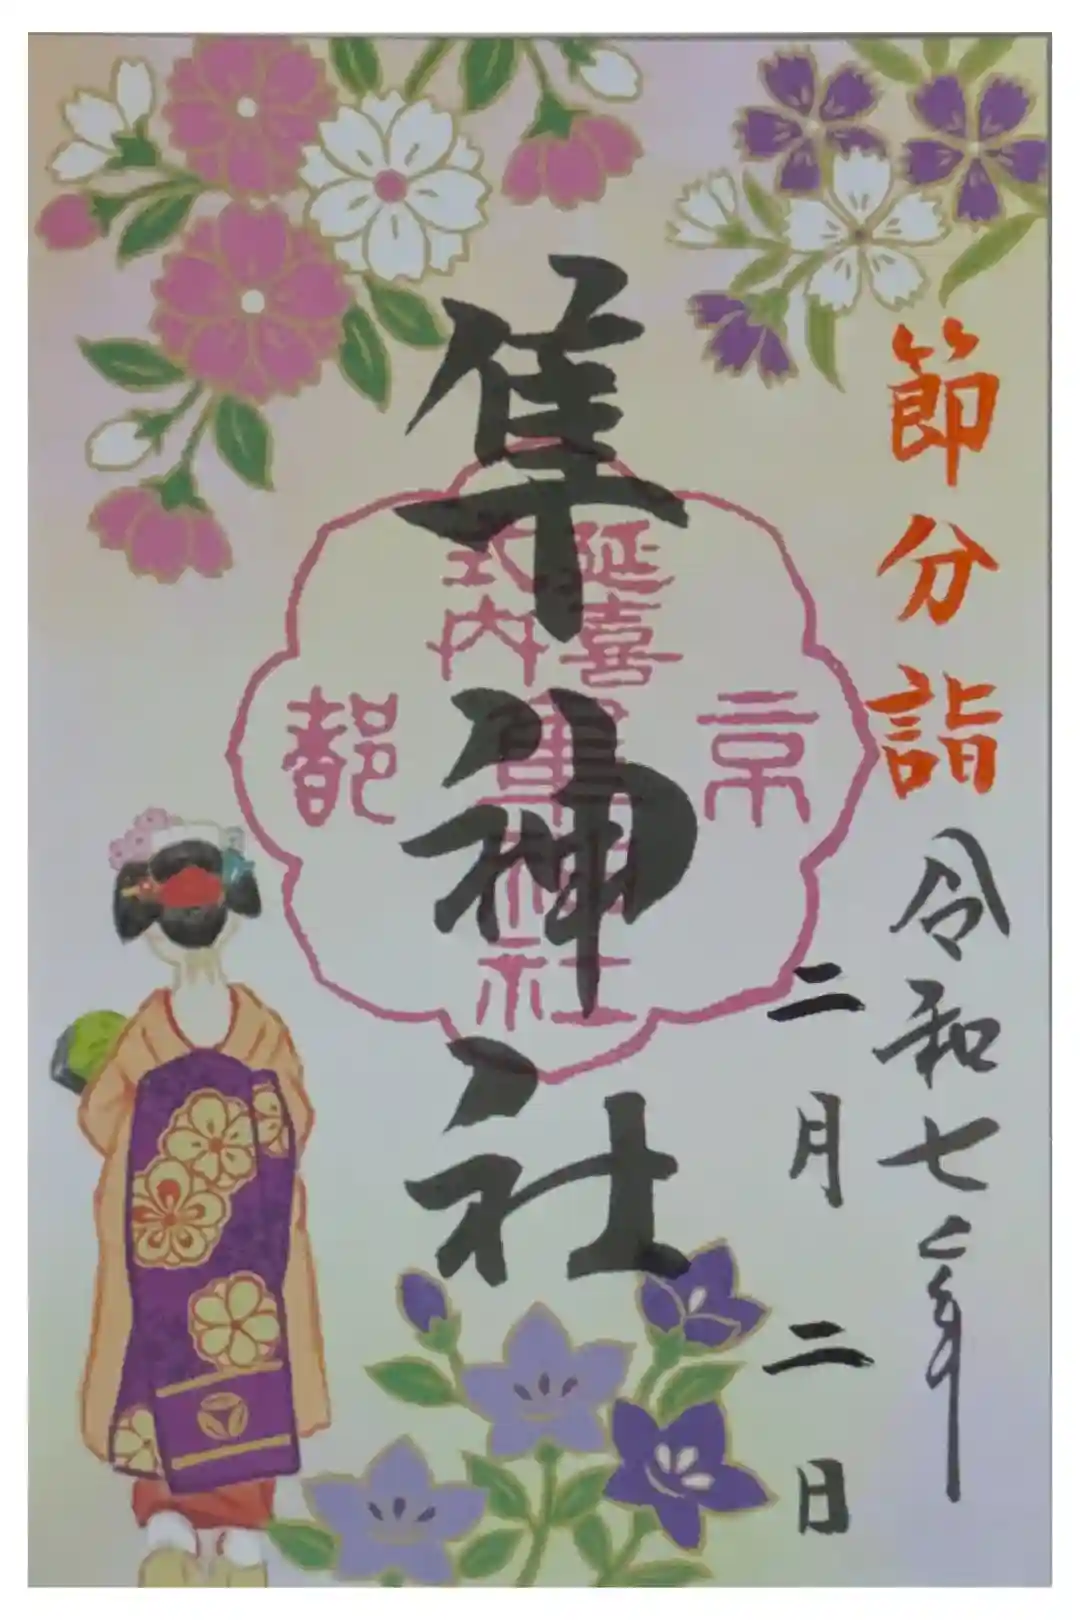 節分詣
令和七年
二月二日
隼神社
京
都
延喜
式内
隼神社